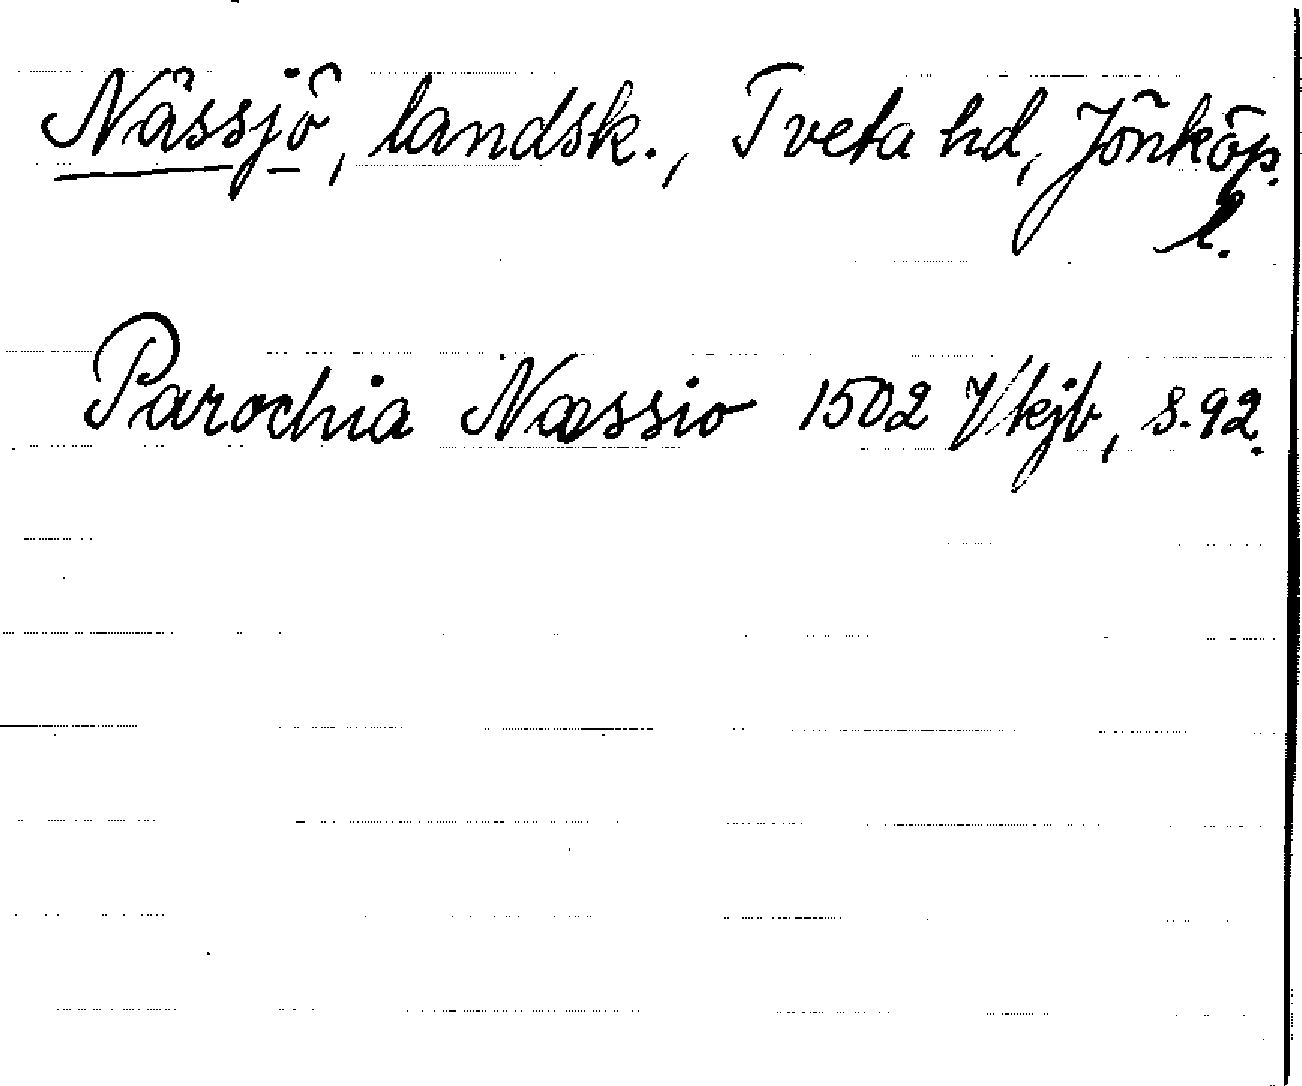 Nässjö, landsk., Tveta hd, Jönköp.
l.
Parochia Næssio 1502 Vkjb, s. 92.